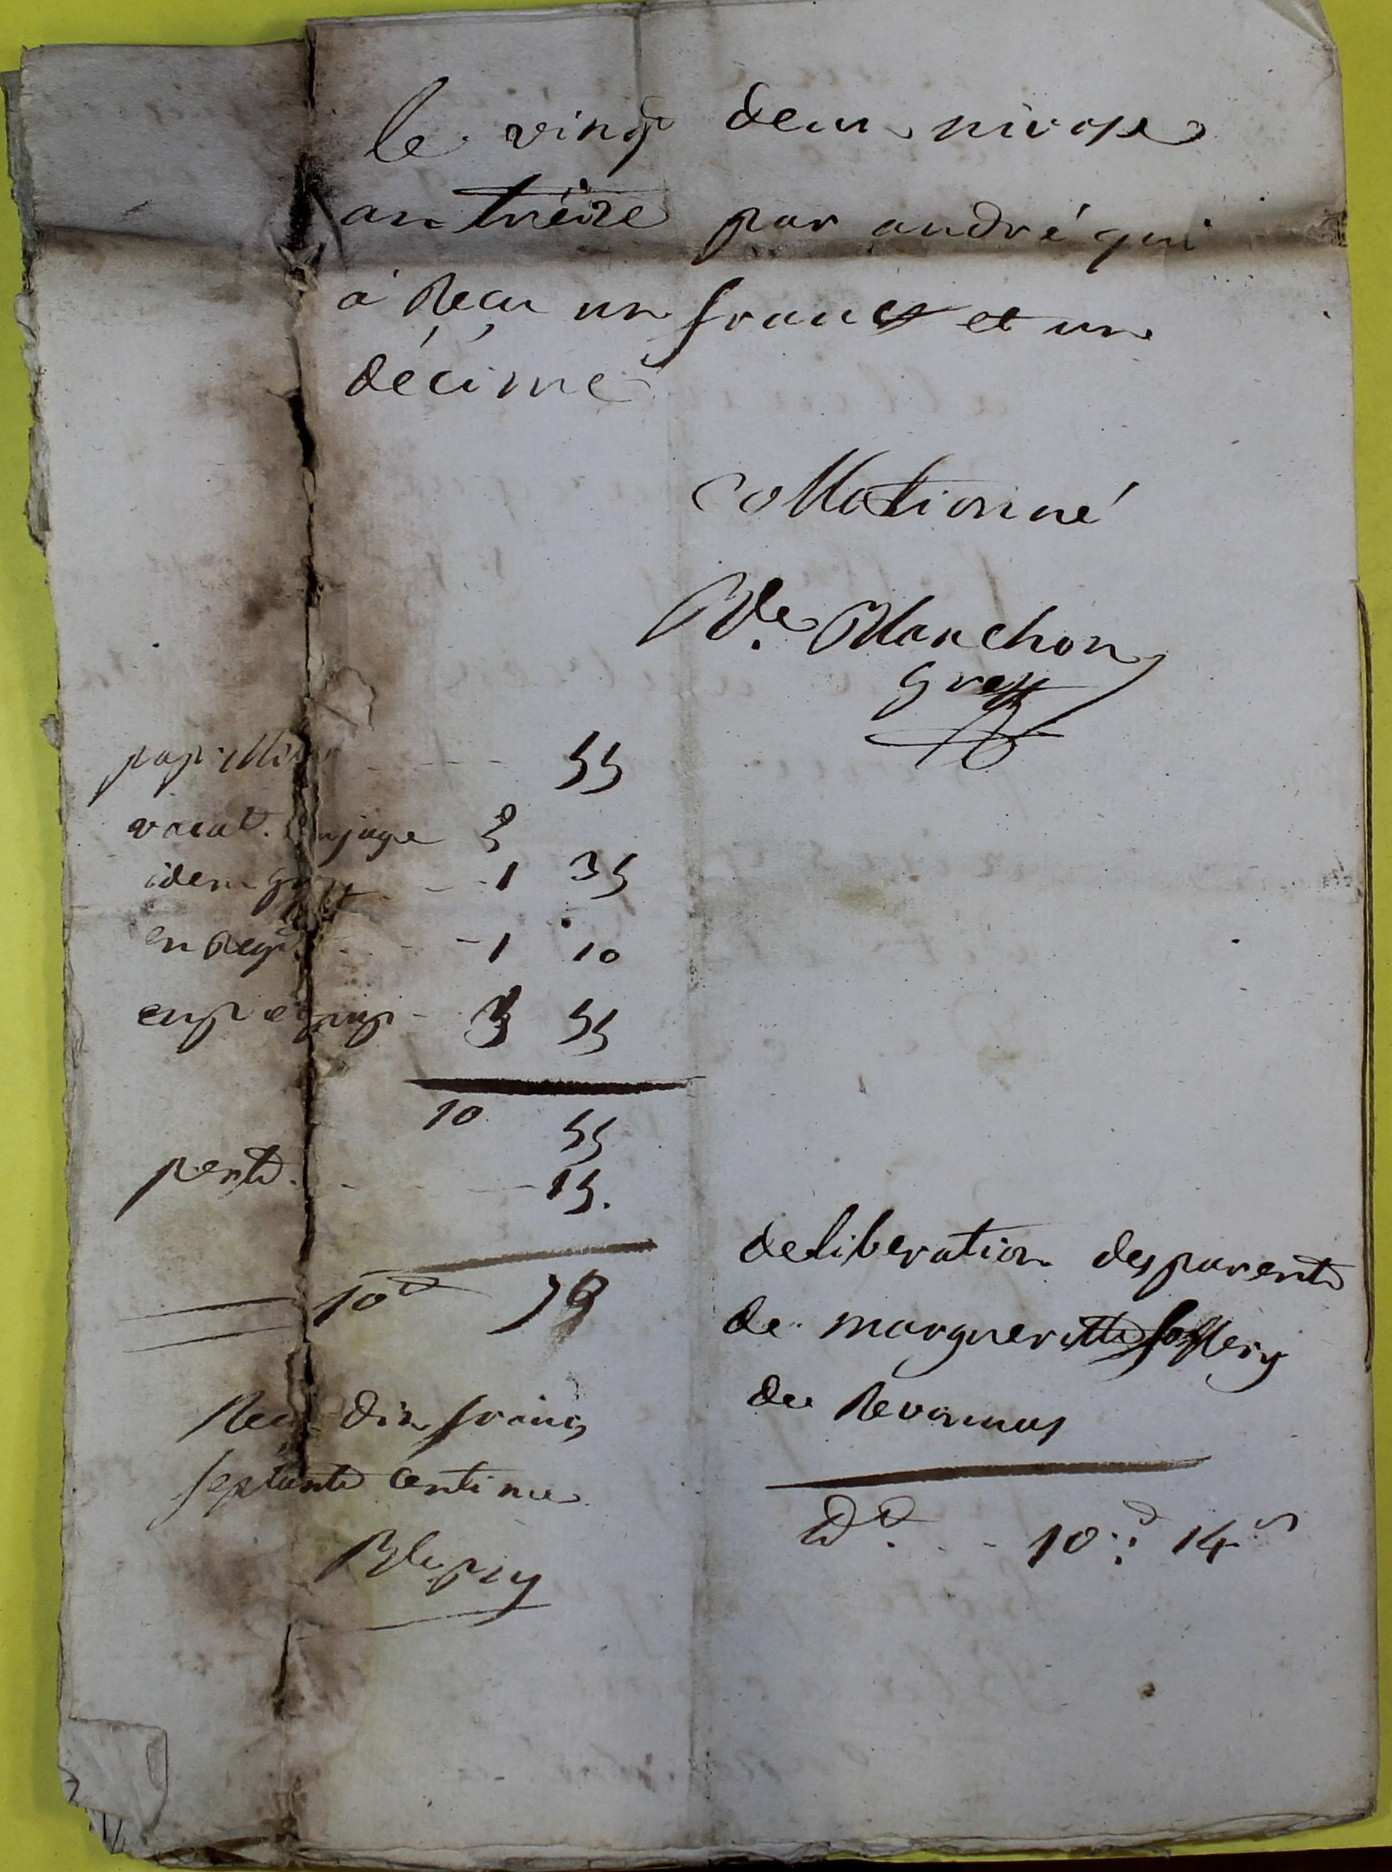 le vingt deux nivose
an treize par andré qui
à Recu un franc et un
décime
collationné
Blanchon
greff
pap. 55
vacat. juge 3
idem greff 1 35
en Reg. 1 10
exp 3 55
10 55
15.
10 70
Recu dix francs
septante centime
deliberation des parents
de margueritte
de Revonnas
10 14